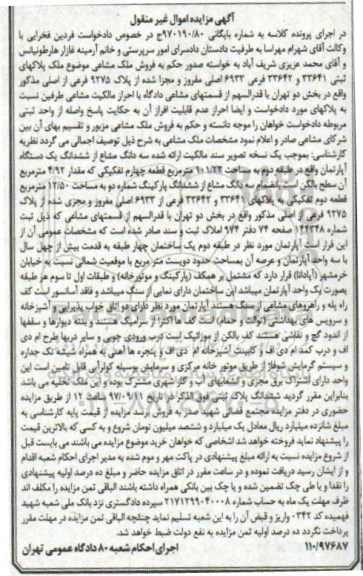 آگهی مزایده اموال غیر منقول
در اجرای پرونده کلاسه به شماره بایگانی ۹۷۰۱۹۰/۸۰ج در خصوص دادخواست فردین فخرایی با
وکالت آقای شهرام مهراسا به طرفیت دادستان دادسرای امور سرپرستی و خانم آرمینه غازار هارطونیانس
و آقای محمد عزیزی شریف آباد به خواسته صدور حکم به فروش ملک مشاعی موضوع ملک پلاکهای
ثبتی ۳۳۶۴۱ و ۳۳۶۴۲ فرعی ۶۹۳۳ اصلی مفروز و مجزا شده از پلاک ۹۲۷۵ فرعی از اصلی مذکور
واقع در بخش دو تهران با قدرالسهم از قسمتهای مشاعی دادگاه با احراز مالکیت مشاعی طرفین نسبت
به پلاکهای مورد دادخواست و ایضا احراز عدم قابلیت افراز آن به حکایت پاسخ واصله از واحد ثبتی
مربوطه دادخواست خواهان را موجه دانسته و حکم به فروش ملک مشاعی مزبور و تقسیم بهای آن بین
شرکای مشاعی صادر و اعلام نمود مشخصات ملک مشاعی به شرح ذیل توصیف اجمالی می گردد نظریه
کارشناسی: بموجب یک نسخه تصویر سند مالکیت ارائه شده سه دانگ مشاع از ششدانگ یک دستگاه
آپارتمان واقع در طبقه دوم به مساحت ۱۰۱/۲۴ مترمربع قطعه چهارم تفکیکی که مقدار ۴/۹۲ مترمربع
آن سطح بالکن است بانضمام سه دانگ مشاع از ششدانگ پارکینگ شماره دو به مساحت ۱۲/۵۰ مترمربع
قطعه دوم تفکیکی به پلاکهای ۳۳۶۴۱ و ۳۳۶۴۲ فرعی از ۶۹۳۳ اصلی مفروز و مجزی شده از پلاک
۹۲۷۵ فرعی از اصلی مذکور واقع در بخش دو تهران با قدرالسهم از قسمتهای مشاعی که ذیل ثبت
شماره ۱۴۲۳۴۸ صفحه ۷۴ دفتر ۹۷۴ املاک ثبت و سند صادر شده است که مشخصات عمومی آن از
این قرار است آپارتمان مورد نظر در طبقه دوم یک ساختمان چهار طبقه به قدمت بیش از چهل سال
با سه واحد آپارتمان و عرصه آن بمساحت حدود دویست متر مربع با موقعیت شمالی نسبت به خیابان
خرمشهر (آپادانا) قرار دارد که مشتمل بر همکف (پارکینگ و موتورخانه) و طبقات اول تا سوم هر طبقه
بصورت یک واحد آپارتمان میباشد این ساختمان دارای نمایی از سنگ میباشد و فاقد آسانسور است کف
راه پله و راهروهای مشاعی از سنگ هستند آپارتمان مورد نظر دارای دو اتاق خواب پذیرایی و آشپزخانه
و سرویس های بهداشتی (توالت و حمام) است کف ها اکثرا از سرامیک هستند و بدنه دیوارها و سقفها
از اندود گچ و نقاشی هستند کف بالکن از موزائیک است درب ورودی چوبی و سایر دربها طرح ام دی
اف و درب کمد ام دی اف و کابینت آشپزخانه ام دی اف و پنجره ها آهنی به همراه شیشه تک جداره
و سیستم گرمایش شوفاژ از طریق موتور خانه مرکزی و سرمایش بوسیله کولرآبی قابل تامین است این
واحد دارای اشتراک برق مجزی و انشعابهای آب و گاز شهری مشترک بوده و این ملک تخلیه می باشد
بنابراین مقرر گردید ششدانگ پلاک ثبتی فوق الذکر در تاریخ ۹۷۰۹/۱۱ ساعت ۱۲ از طریق مزایده
حضوری در دفتر مزایده مجتمع قضائی شهید صدر به فروش برسد مزایده از قیمت پایه کارشناسی به
مبلغ شانزده میلیارد ریال معادل یک میلیارد و ششصد میلیون تومان شروع و به کسی که بالاترین قیمت
را پیشنهاد نماید فروخته خواهد شد اشخاصی که خواهان خرید موضوع مزایده می باشند می بایست قبل
از شروع مزایده نسبت به ارائه مبلغ پیشنهادی در پاکت مهر و موم شده به مدیر اجرای احکام شعبه اقدام
و از ایشان رسید دریافت نموده و در ساعت مقرر در اتاق مزایده حاضر و مبلغ ده درصد اولیه پیشنهادی
را نقدا و یا طی چک تضمین شده و یا چک بین بانکی همراه داشته باشند الباقی ثمن مزایده را مکلف اند
ظرف مهلت یک ماه به حساب شماره ۲۱۷۱۲۹۹۰۴۰۰۰۸ سپرده دادگستری نزد بانک ملی شعبه شهید
فهمیده کد ۳۴۲- واریز و قبض آن را به این شعبه تسلیم نماید چنانچه الباقی ثمن مزایده در مهلت مقرر
پرداخت نگردد ده درصد اولیه ثمن مزایده به نفع دولت ضبط خواهد شد.
۱۱۰/۹۷۶۸۷ اجرای احکام شعبه ۸۰ دادگاه عمومی تهران